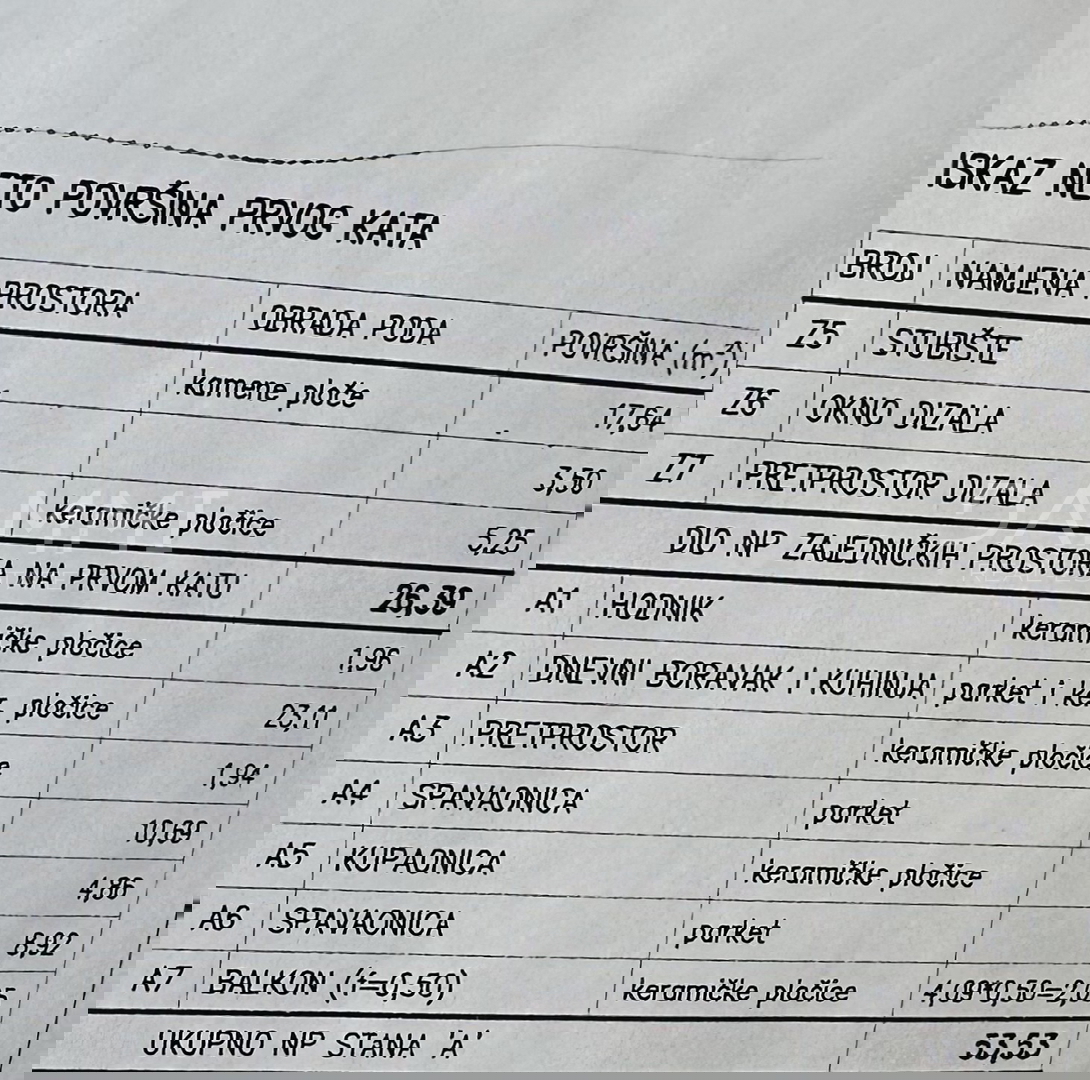 ISKAZ NETO POVRŠINA PRVOG KATA
BROJ NAMJENA PROSTORA OBRADA PODA POVRŠINA (m²)
Z5 STUBIŠTE kamene ploče 17,64
Z6 OKNO DIZALA 3,50
Z7 PRETPROSTOR DIZALA keramičke pločice 5,25
DIO NP ZAJEDNIČKIH PROSTORA NA PRVOM KATU 26,39
A1 HODNIK keramičke pločice 1,96
A2 DNEVNI BORAVAK I KUHINJA parket i ker. pločice 23,11
A3 PRETPROSTOR keramičke pločice 1,94
A4 SPAVAONICA parket 10,69
A5 KUPAONICA keramičke pločice 4,86
A6 SPAVAONICA parket 8,92
A7 BALKON (f=0,50) keramičke pločice 4,09*0,50=2,05
UKUPNO NP STANA 'A' 53,53